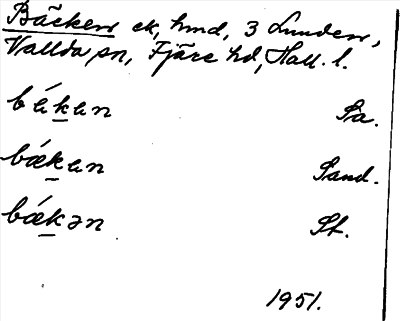 Bäcken ek, hmd, 3 Lunden,
Vallda sn, Fjäre hd, Hall. l.
békun Sa.
bǽkun Sand.
bǽkən St.
1951.